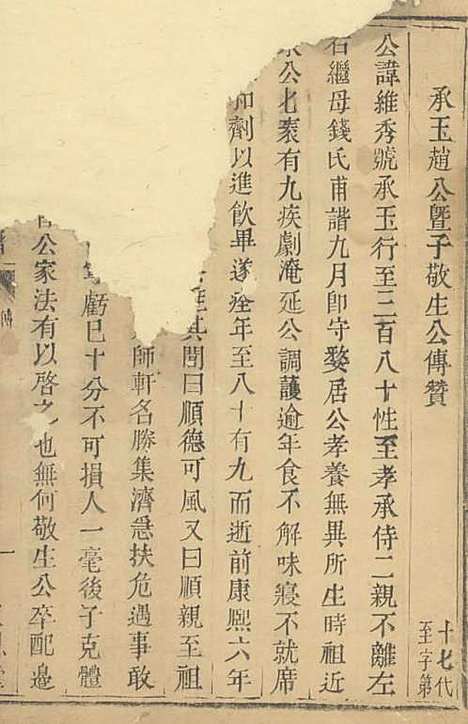 承玉趙公暨子敬生公傳贊
十七代
至字第
公諱維秀號承玉行至三百八十性至孝承侍二親不離左
右繼母錢氏甫諧九月即守婺居公孝養無異所生時祖近
公七袠有九疾劇淹延公調護逾年食不解味寢不就席
和劑以進飲畢遂痊年至八十有九而逝前康熙六年
其閭曰順德可風又曰順親至祖
師軒名勝集濟急扶危遇事敢
虧巳十分不可損人一毫後子克體
公家法有以啓之也無何敬生公卒配邊
傳
一